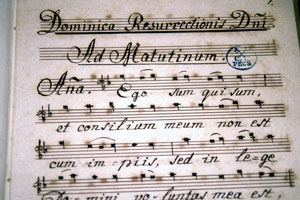 Dominica Resurrectionis Dñi
Ad Matutinum.
PÉCS
Aña. Ego sum qui sum,
et consilium meum non est
cum im-piis, sed in le-ge
Do-mini vo-luntas mea est,